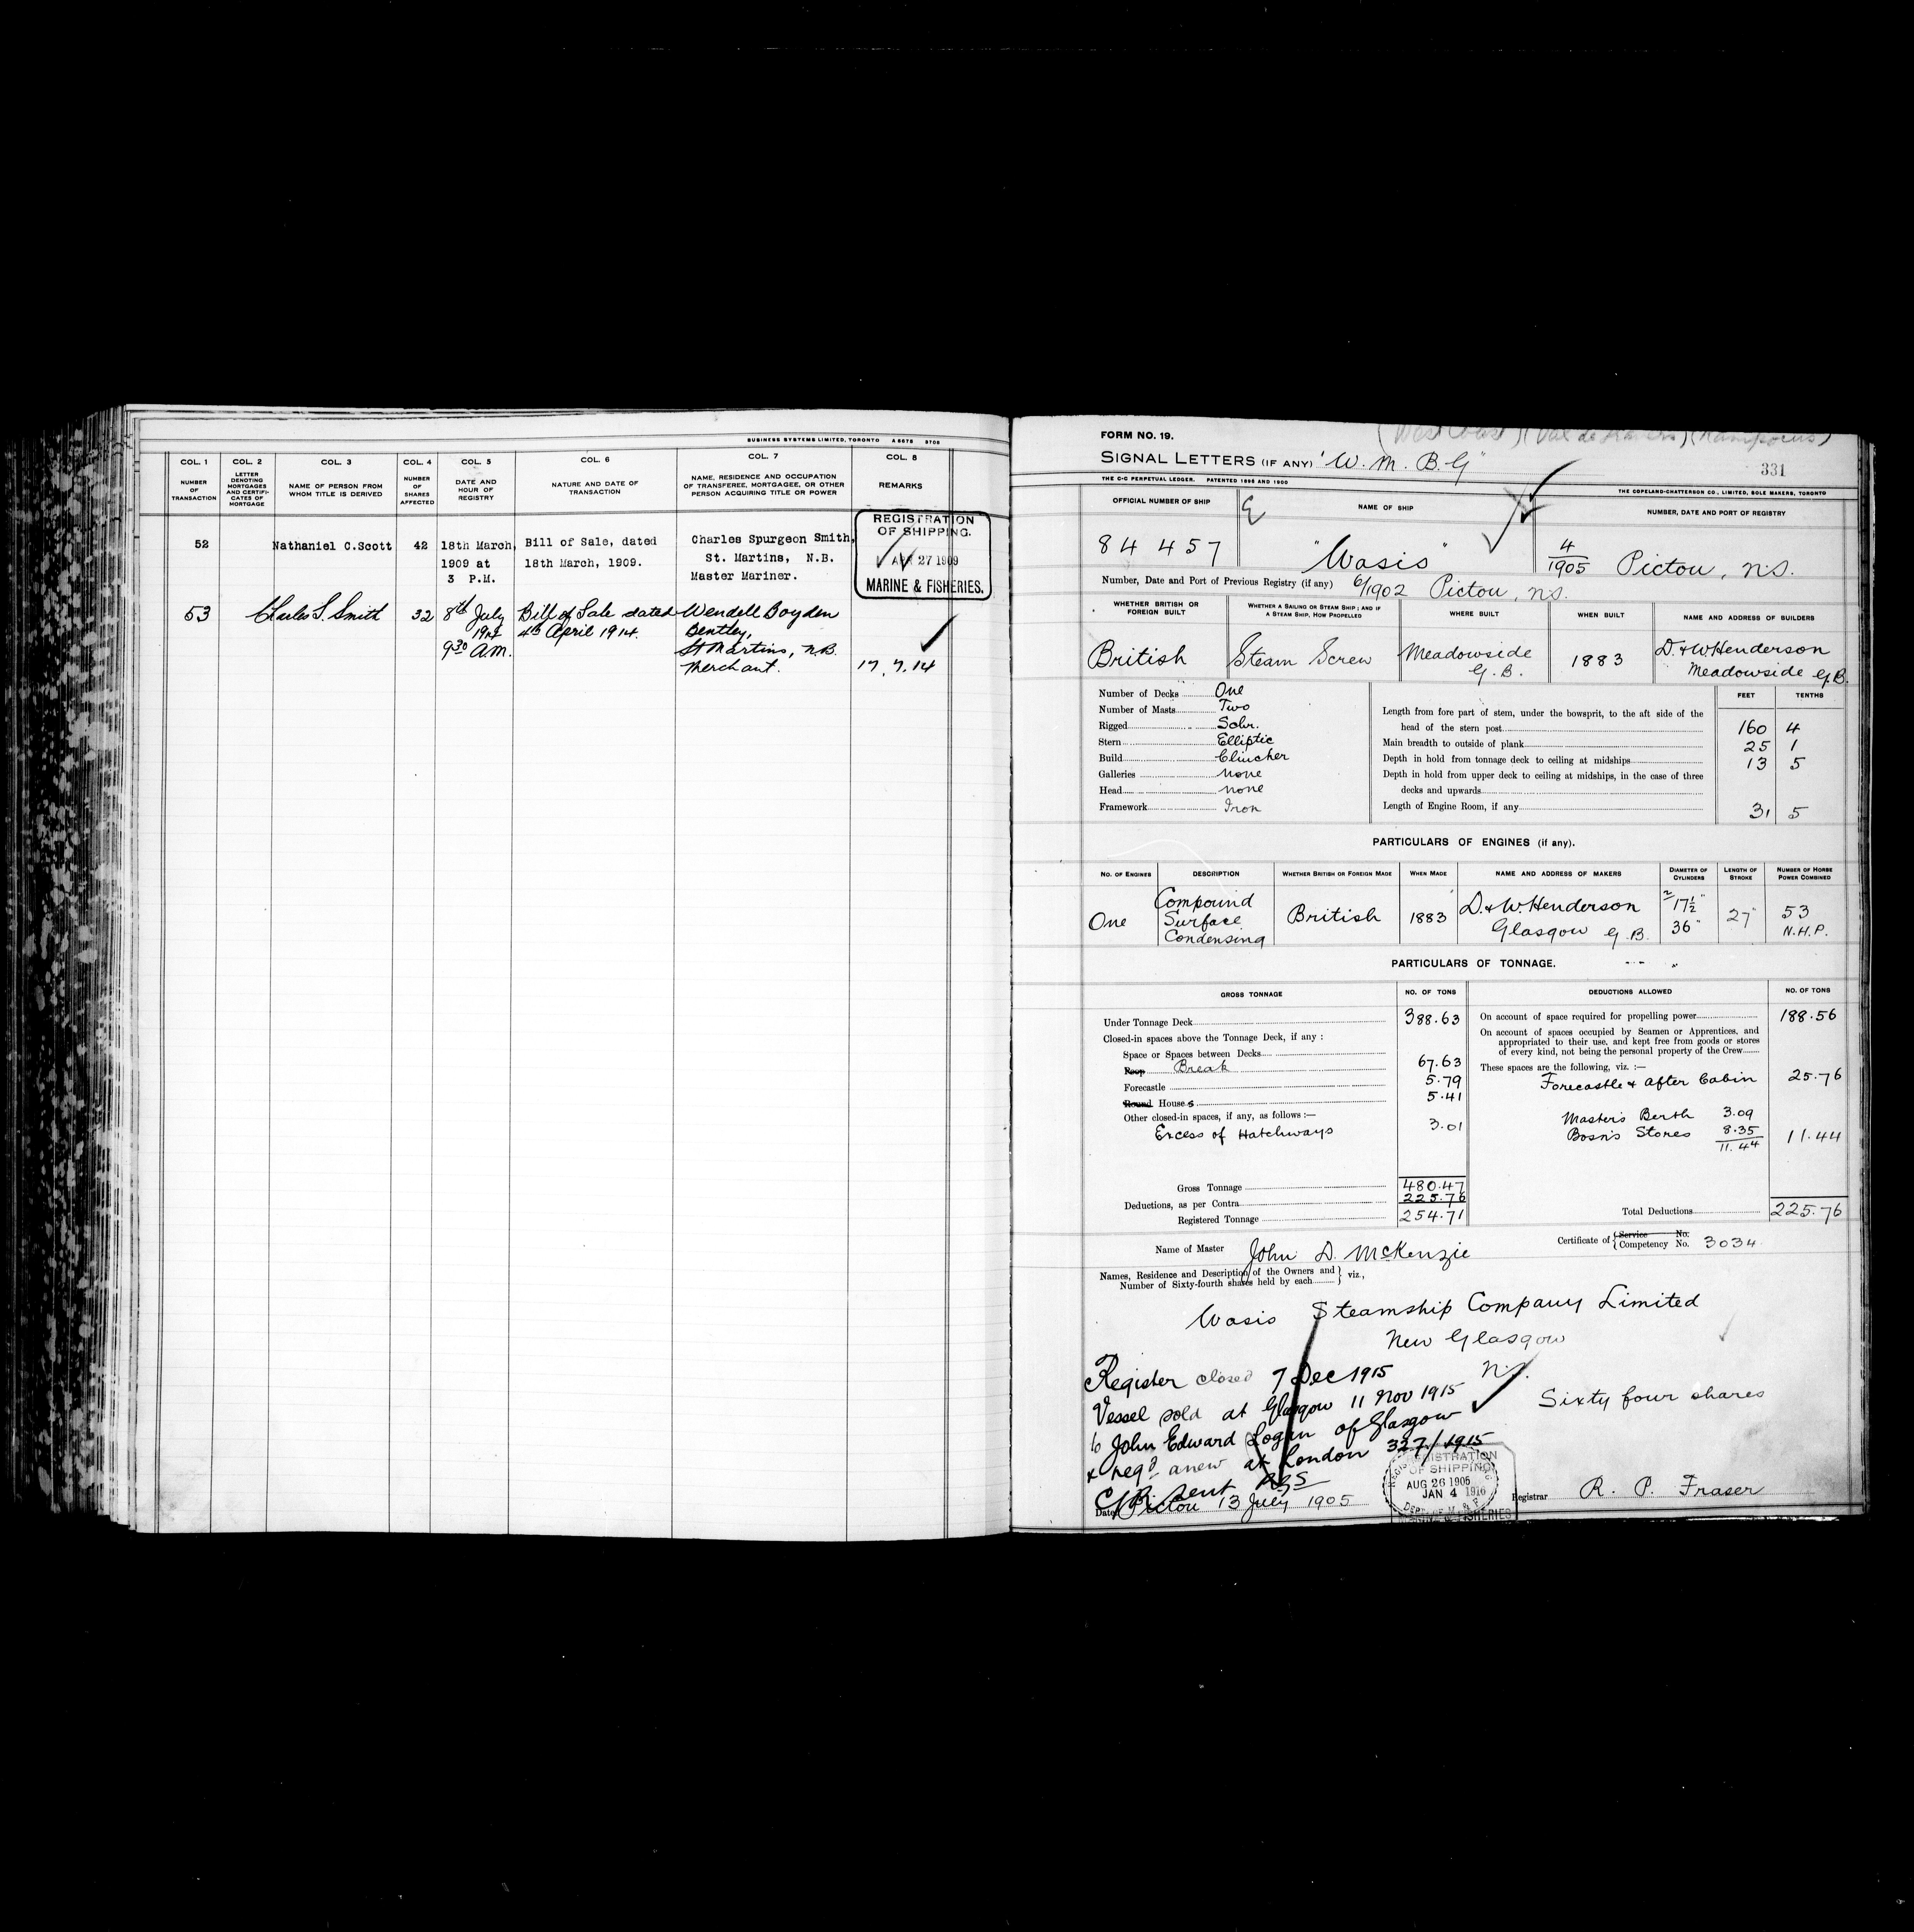 BUSINESS SYSTEMS LIMITED, TORONTO A 6676 5708
COL. 1 COL. 2 COL. 3 COL. 4 COL. 5 COL. 6 COL. 7 COL. 8
NUMBER OF TRANSACTION
LETTER DENOTING MORTGAGES AND CERTIFICATES OF MORTGAGE
NAME OF PERSON FROM WHOM TITLE IS DERIVED
NUMBER OF SHARES AFFECTED
DATE AND HOUR OF REGISTRY
NATURE AND DATE OF TRANSACTION
NAME, RESIDENCE AND OCCUPATION OF TRANSFEREE, MORTGAGEE, OR OTHER PERSON ACQUIRING TITLE OR POWER
REMARKS
52 Nathaniel C.Scott 42 18th March, Bill of Sale, dated Charles Spurgeon Smith,
1909 at 18th March, 1909. St. Martins, N.B.
3 P.M. Master Mariner.
REGISTRATION
OF SHIPPING.
APR 27 1909
MARINE & FISHERIES.
53 Charles S. Smith 32 8th July Bill of Sale dated Wendell Boyden
1914 4th April 1914. Bentley,
9 30 A.M. St Martins, N.B.
Merchant. 17.7.14
FORM NO. 19. (West Coast)
SIGNAL LETTERS (IF ANY) "W. M. B. G"
331
THE C-C PERPETUAL LEDGER. PATENTED 1896 AND 1900
THE COPELAND-CHATTERSON CO., LIMITED, SOLE MAKERS, TORONTO
OFFICIAL NUMBER OF SHIP NAME OF SHIP NUMBER, DATE AND PORT OF REGISTRY
84 457 "Wasis" 4/1905 Pictou, N.S.
Number, Date and Port of Previous Registry (if any) 6/1902 Pictou, N.S.
WHETHER BRITISH OR FOREIGN BUILT
WHETHER A SAILING OR STEAM SHIP; AND IF A STEAM SHIP, HOW PROPELLED
WHERE BUILT WHEN BUILT NAME AND ADDRESS OF BUILDERS
British Steam Screw Meadowside 1883 D. & W Henderson
G. B. Meadowside G.B.
FEET TENTHS
Number of Decks One
Number of Masts Two
Rigged Schr.
Stern Elliptic
Build Clincher
Galleries None
Head None
Framework Iron
Length from fore part of stem, under the bowsprit, to the aft side of the
head of the stern post 160 4
Main breadth to outside of plank 25 1
Depth in hold from tonnage deck to ceiling at midships 13 5
Depth in hold from upper deck to ceiling at midships, in the case of three
decks and upwards
Length of Engine Room, if any 31 5
PARTICULARS OF ENGINES (if any).
NO. OF ENGINES DESCRIPTION WHETHER BRITISH OR FOREIGN MADE WHEN MADE NAME AND ADDRESS OF MAKERS DIAMETER OF CYLINDERS LENGTH OF STROKE NUMBER OF HORSE POWER COMBINED
One Compound Surface Condensing British 1883 D. & W. Henderson Glasgow G.B. 2 17½" 36" 27" 53 N.H.P.
PARTICULARS OF TONNAGE.
GROSS TONNAGE NO. OF TONS DEDUCTIONS ALLOWED NO. OF TONS
Under Tonnage Deck 388.63
Closed-in spaces above the Tonnage Deck, if any :
Space or Spaces between Decks
Poop Break 67.63
Forecastle 5.79
Round Houses 5.41
Other closed-in spaces, if any, as follows :—
Excess of Hatchways 3.01
Gross Tonnage 480.47
Deductions, as per Contra 225.76
Registered Tonnage 254.71
On account of space required for propelling power 188.56
On account of spaces occupied by Seamen or Apprentices, and
appropriated to their use, and kept free from goods or stores
of every kind, not being the personal property of the Crew
These spaces are the following, viz. :—
Forecastle & After Cabin 25.76
Master's Berth 3.09
Bosn's Stores 8.35
11.44 11.44
Total Deductions 225.76
Name of Master John D. McKenzie
Certificate of Service No. Competency No. 3034
Names, Residence and Description of the Owners and
Number of Sixty-fourth shares held by each viz.,
Wasis Steamship Company Limited
New Glasgow
N.S.
Sixty four shares
Register closed 7 Dec 1915
Vessel sold at Glasgow 11 Nov 1915
to John Edward Logan of Glasgow
& regd anew at London 327/1915
CR sent
REGISTRATION
OF SHIPPING
AUG 26 1905
JAN 4 1916
DEPT. OF M. & F.
Dated Pictou 13 July 1905
Registrar R. P. Fraser